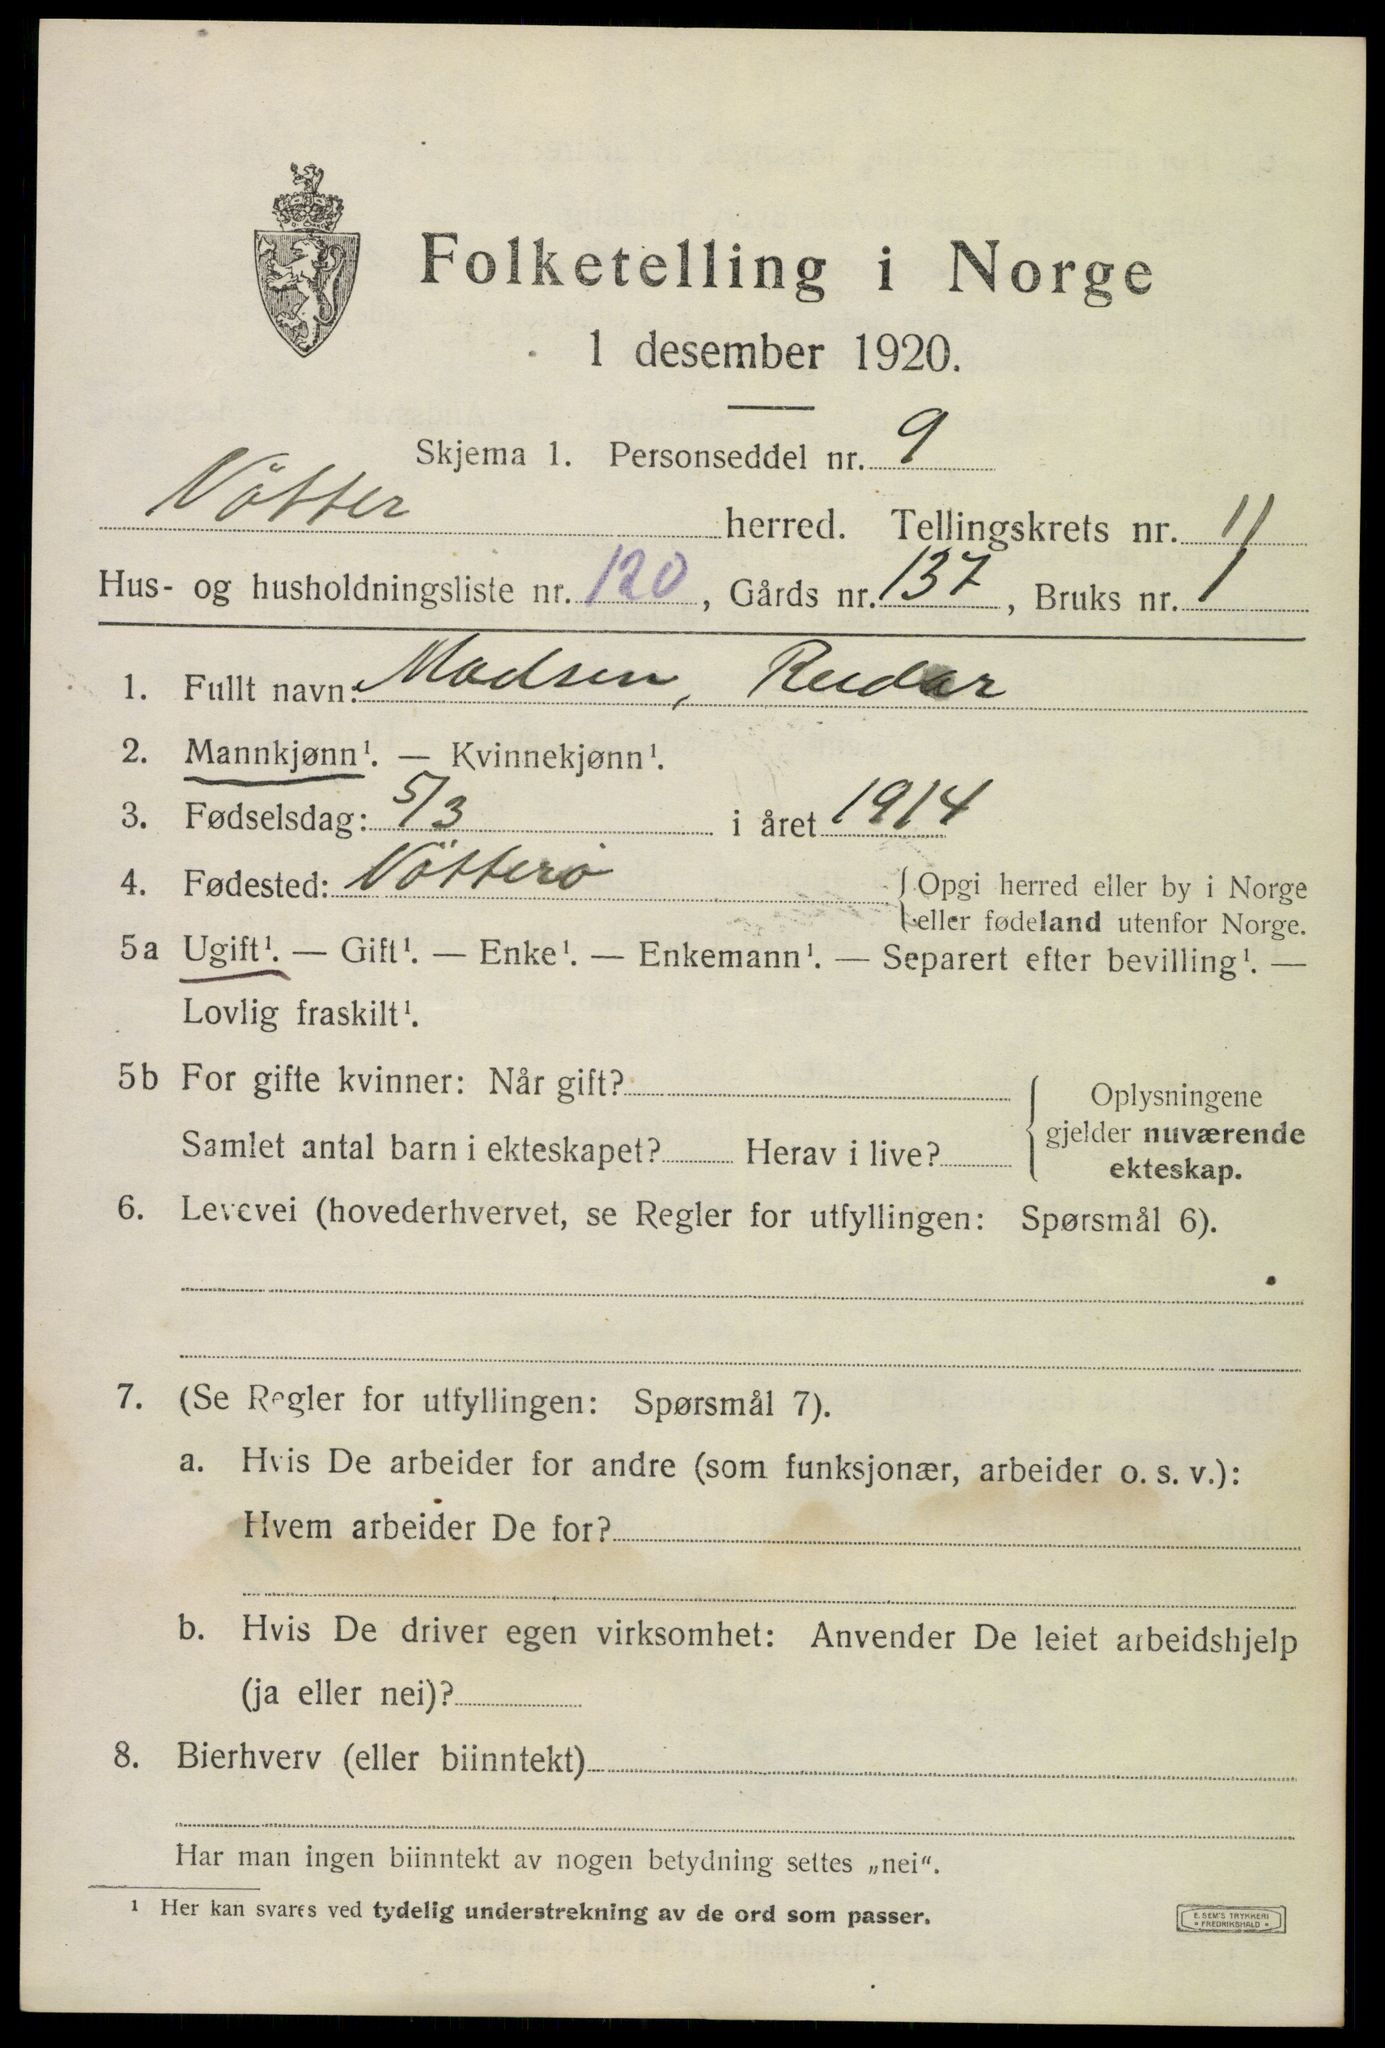 Folketelling i Norge
1 desember 1920.
Skjema 1. Personseddel nr. 9
Nøtter herred. Tellingskrets nr. 11
Hus- og husholdningsliste nr. 120, Gårds nr. 137, Bruks nr. 1
1. Fullt navn: Madsen, Reidar
2. Mannkjønn¹. — Kvinnekjønn¹.
3. Fødselsdag: 5/3 i året 1914
4. Fødested: Nøtterø { Opgi herred eller by i Norge
eller fødeland utenfor Norge.
5a Ugift¹. — Gift¹. — Enke¹. — Enkemann¹. — Separert efter bevilling¹. —
Lovlig fraskilt¹.
5b For gifte kvinner: Når gift? { Oplysningene
gjelder nuværende
Samlet antal barn i ekteskapet? Herav i live?
ekteskap.
6. Levevei (hovederhvervet, se Regler for utfyllingen: Spørsmål 6).
7. (Se Regler for utfyllingen: Spørsmål 7).
a. Hvis De arbeider for andre (som funksjonær, arbeider o. s. v.):
Hvem arbeider De for?
b. Hvis De driver egen virksomhet: Anvender De leiet arbeidshjelp
(ja eller nei)?
8. Bierhverv (eller biinntekt)
Har man ingen biinntekt av nogen betydning settes „nei“.
¹ Her kan svares ved tydelig understrekning av de ord som passer.
E. SEM'S TRYKKERI
FREDRIKSHALD